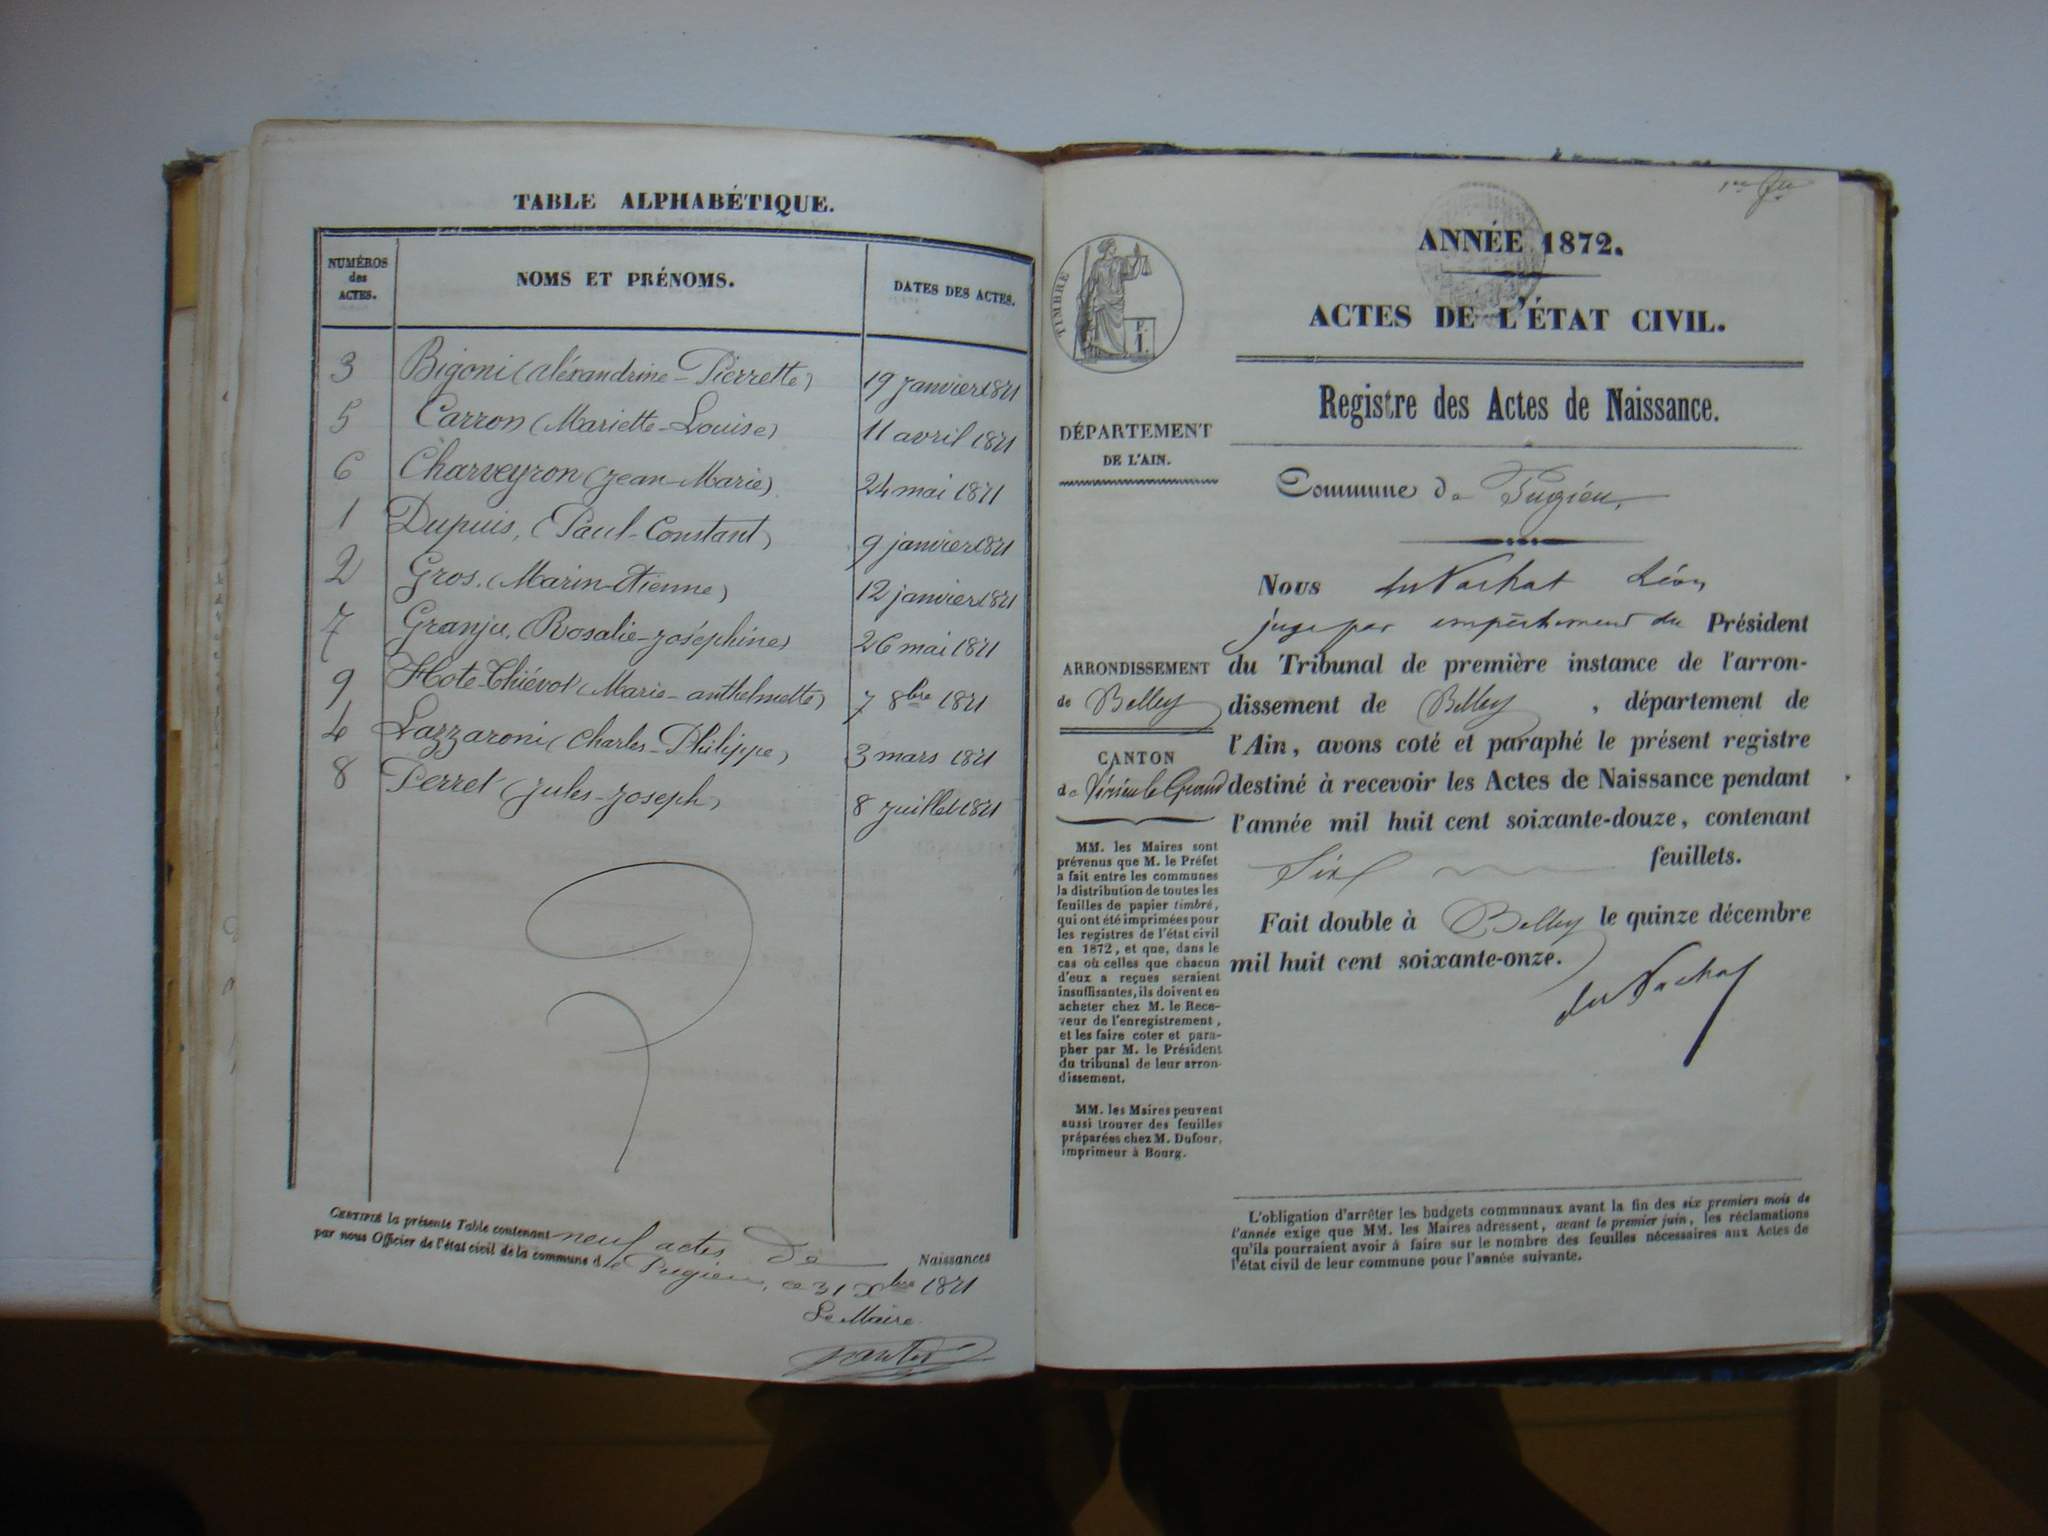 TABLE ALPHABÉTIQUE.
NUMÉROS des ACTES.
NOMS ET PRÉNOMS.
DATES DES ACTES.
3 Bigoni (Aléxandrine-Pierrette) 19 janvier 1871
5 Carron (Mariette-Louise) 11 avril 1871
6 Charveyron (Jean-Marie) 24 mai 1871
1 Dupuis, (Paul-Constant) 9 janvier 1871
2 Gros. (Marin-Etienne) 12 janvier 1871
7 Granju, (Rosalie-Joséphine) 26 mai 1871
9 Hote-Thiévot (Marie-anthelmette) 7 8bre 1871
4 Lazzaroni (Charles-Philippe) 3 mars 1871
8 Perret (Jules-Joseph) 8 juillet 1871
CERTIFIÉ la présente Table contenant neuf actes De Naissances
par nous Officier de l'état civil de la commune de Pugieu, ce 31 Xbre 1871
Le Maire
1er
ANNÉE 1872.
ACTES DE L'ÉTAT CIVIL.
Registre des Actes de Naissance.
TIMBRE
F.
1.
DÉPARTEMENT
DE L'AIN.
Commune de Pugieu,
ARRONDISSEMENT
de Belley
CANTON
de Virieu le Grand
MM. les Maires sont
prévenus que M. le Préfet
a fait entre les communes
la distribution de toutes les
feuilles de papier timbré,
qui ont été imprimées pour
les registres de l'état civil
en 1872, et que, dans le
cas où celles que chacun
d'eux a reçues seraient
insuffisantes, ils doivent en
acheter chez M. le Rece-
veur de l'enregistrement,
et les faire coter et para-
pher par M. le Président
du tribunal de leur arron-
dissement.
MM. les Maires peuvent
aussi trouver des feuilles
préparées chez M. Dufour,
imprimeur à Bourg.
Nous du Vachat Léon
juge par empêchement du Président
du Tribunal de première instance de l'arron-
dissement de Belley, département de
l'Ain, avons coté et paraphé le présent registre
destiné à recevoir les Actes de Naissance pendant
l'année mil huit cent soixante-douze, contenant
Six feuillets.
Fait double à Belley le quinze décembre
mil huit cent soixante-onze.
du Vachat
L'obligation d'arrêter les budgets communaux avant la fin des six premiers mois de
l'année exige que MM. les Maires adressent, avant le premier juin, les réclamations
qu'ils pourraient avoir à faire sur le nombre des feuilles nécessaires aux Actes de
l'état civil de leur commune pour l'année suivante.